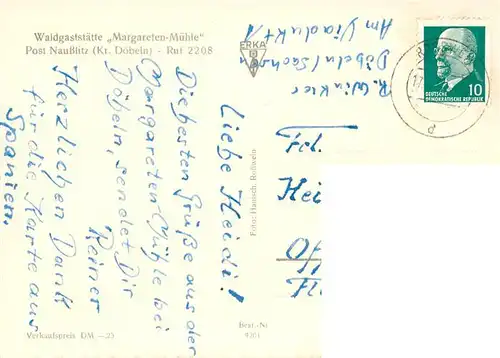 Waldgaststätte „Margareten-Mühle"
Post Naußlitz (Kr. Döbeln) - Ruf 2208
Liebe Heidi!
Die besten Grüße aus der
Margareten-Mühle bei
Döbeln, sendet Dir
Reiner
Herzlichen Dank
für die Karte aus
Spanien.
Verkaufspreis DM —.25
ERKA
Foto: Hanisch, Roßwein
Best.-Nr.
R. Winkler
Döbeln/Sachsen
Am Viadukt
Hei
DEUTSCHE
DEMOKRATISCHE REPUBLIK
10